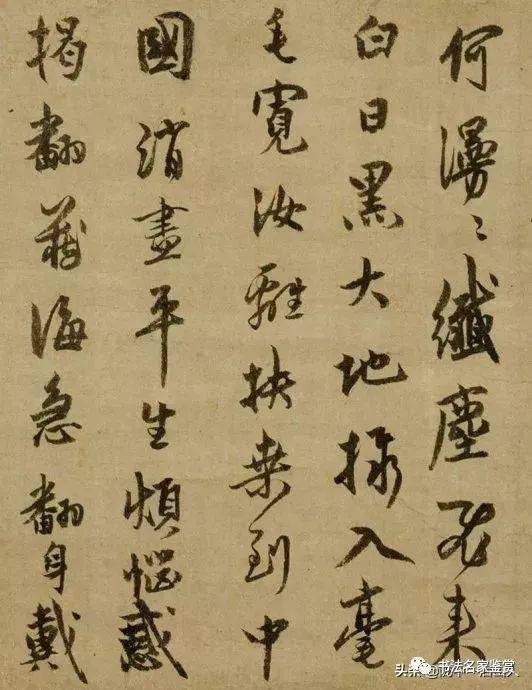 何漫〻纖塵飛来
白日黑大地入毫
毛寬汝離扶桑到中
國消盡平生煩惱惑
揭翻藏海急翻身戴
书法名家鉴赏
头条